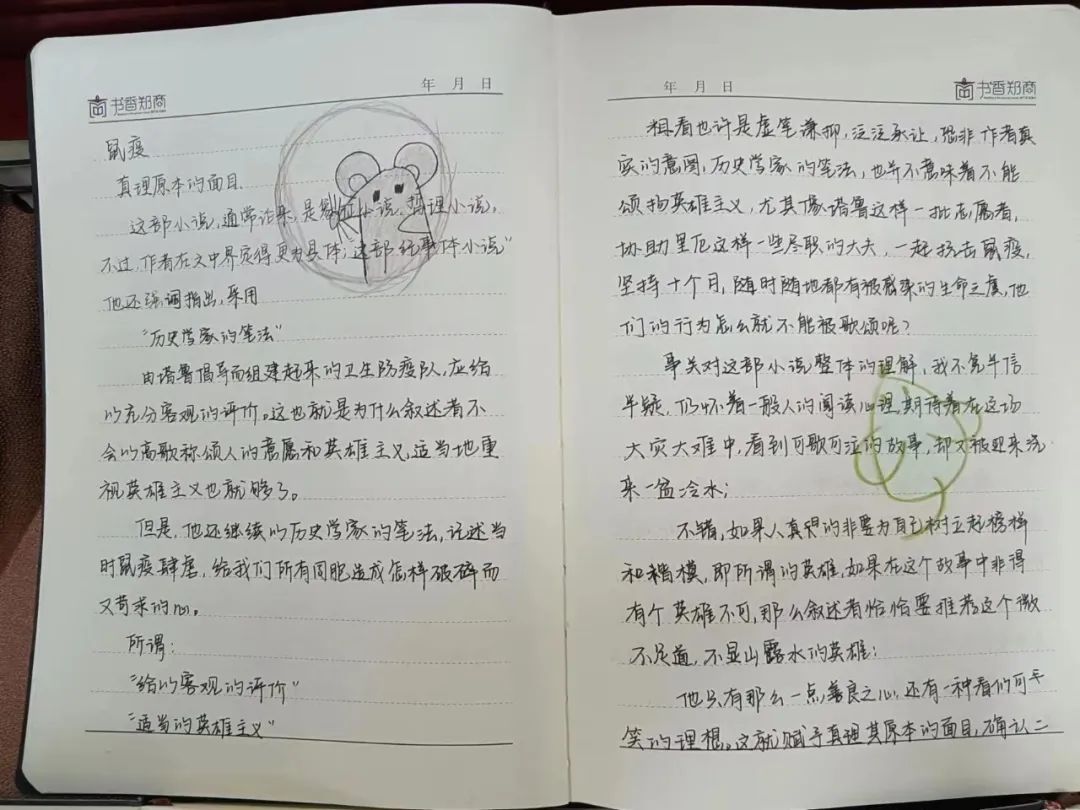 书香郑商
年 月 日
鼠疫
真理原本的面目.
这部小说，通常论来，是寓言小说，哲理小说，
不过，作者在文中界定得更为具体，“这部纪事体小说”
他还强调指出，采用
“历史学家的笔法”
由塔鲁倡导而组建起来的卫生防疫队，应给
以充分客观的评价。这也就是为什么叙述者不
会以高歌称颂人的意愿和英雄主义，适当地重
视英雄主义也就够了。
但是，他还继续以历史学家的笔法，记述当
时鼠疫肆虐，给我们所有同胞造成怎样破碎而
又苛求的心。
所谓：
“给以客观的评价”
“适当的英雄主义”
年 月 日
书香郑商
粗看也许是虚笔谦抑，泛泛承让，殊非作者真
实的意图，历史学家的笔法，也并不意味着不能
颂扬英雄主义，尤其像塔鲁这样一批志愿者，
协助里厄这样一些尽职的大夫，一起抗击鼠疫，
坚持十个月，随时随地都有被感染的生命之虞，他
们的行为怎么就不能被歌颂呢？
事关对这部小说整体的理解，我不免半信
半疑，仍怀着一般人的阅读心理，期待着在这场
大灾大难中，看到可歌可泣的故事，却又被迎来浇
来一盆冷水；
不错，如果人真得的非要为自己树立起榜样
和楷模，即所谓的英雄，如果在这个故事中非得
有个英雄不可，那么叙述者恰恰要推荐这个微
不足道，不显山露水的英雄：
他只有那么一点善良之心，还有一种看似可
笑的理想。这就赋予真理其原本的面目，确认二